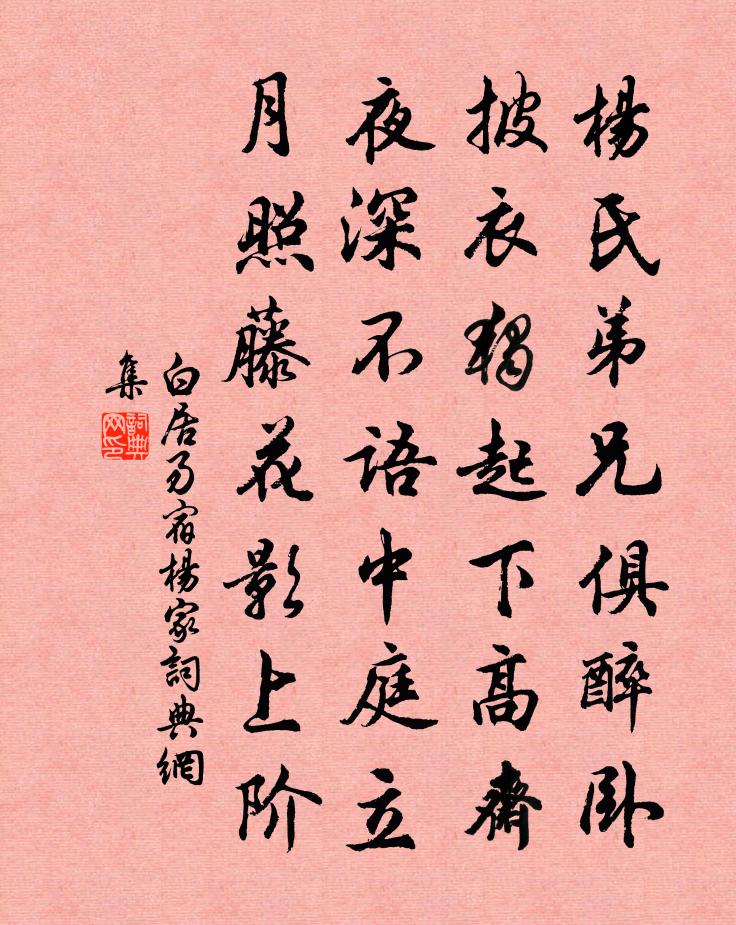 楊氏弟兄俱醉卧
披衣獨起下高齋
夜深不語中庭立
月照藤花影上阶
白居易宿楊家詞典網
集
詞典
网印